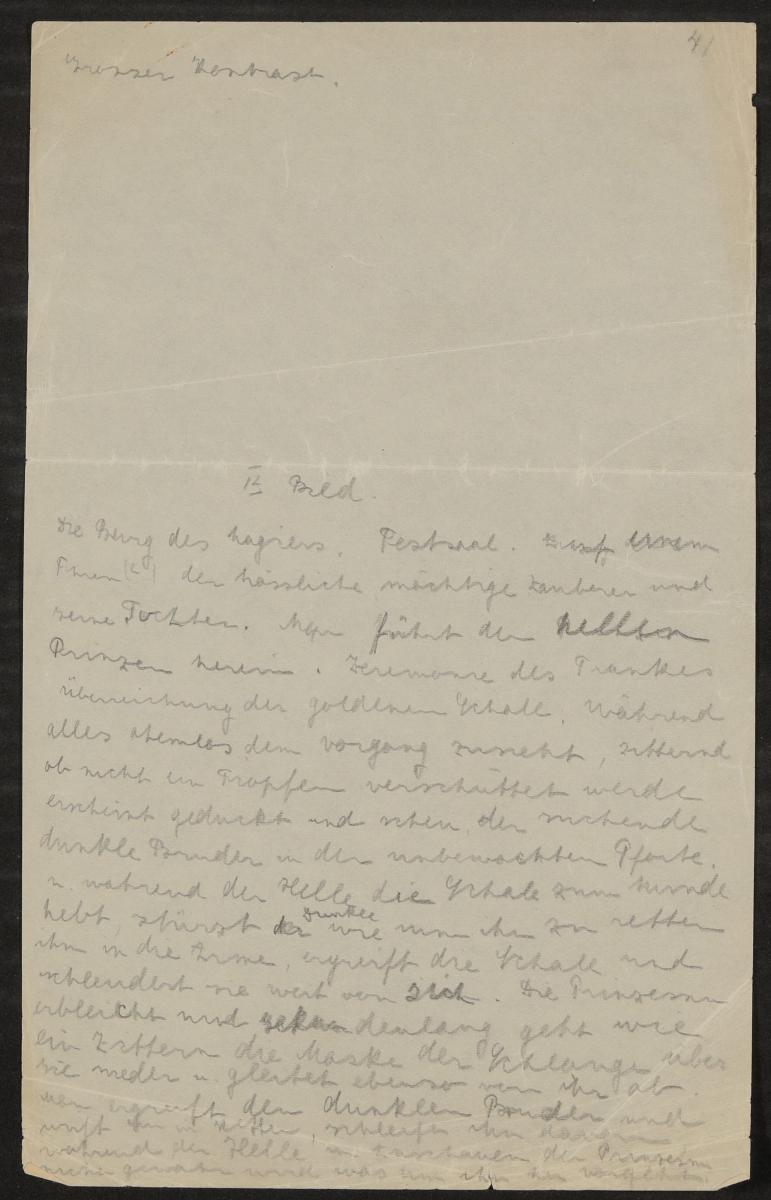 41
Grosser Kontrast.
II Bild.
Die Burg des Magiers. Festsaal. Auf einem
Thron der hässliche mächtige Zauberer und
seine Tochter. Man führt den hellen
Prinzen herein. Zeremonie des Trankes
Überreichung der goldenen Schale. Während
alles atemlos dem Vorgang zusieht, zitternd
ob nicht ein Tropfen verschüttet werde
erscheint geduckt und scheu, der suchende
dunkle Bruder in der unbewachten Pforte.
u. während der Helle die Schale zum Munde
hebt, stürzt der Dunkle wie um ihn zu retten
ihm in die Arme, ergreift die Schale und
schleudert sie weit von sich. Die Prinzessin
erbleicht und sekundenlang geht wie
ein Zittern die Maske der Schlange über
sie nieder u. gleitet ebenso von ihr ab.
man ergreift den dunklen Bruder und
wirft ihn in Ketten, schleifen ihn davon
während der Helle im Anschauen der Prinzessin
nicht gewahr wird was um ihn her vorgeht.